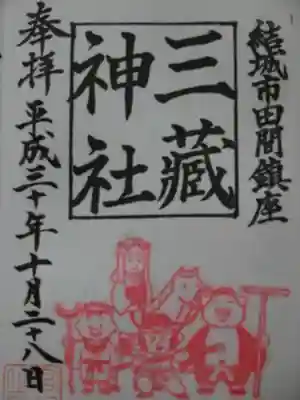 結城市田間鎮座
三藏
神社
奉拝 平成三十年十月二十八日